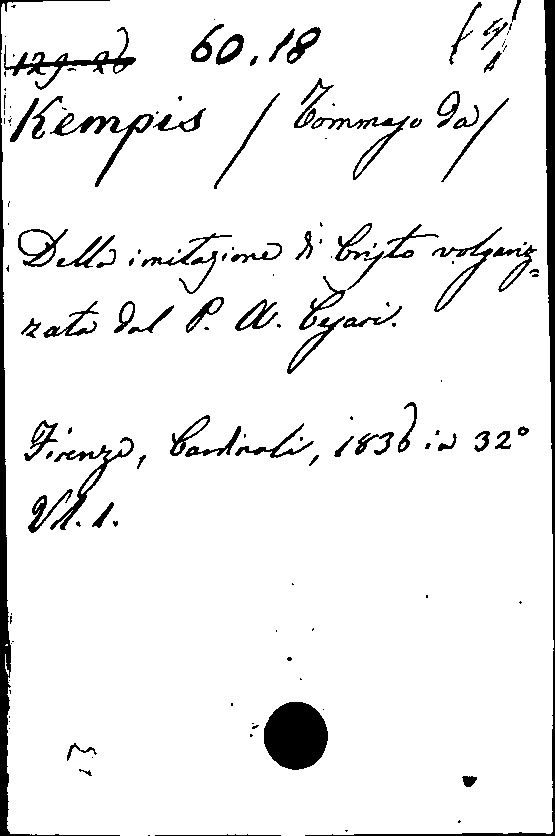 129-26 60.18
Kempis / Tommaso da /
Della imitazione di Cristo volgariz=
zata dal P. A. Cesari.
Firenze, Cardinali, 1836 in 32°
Vl. 1.